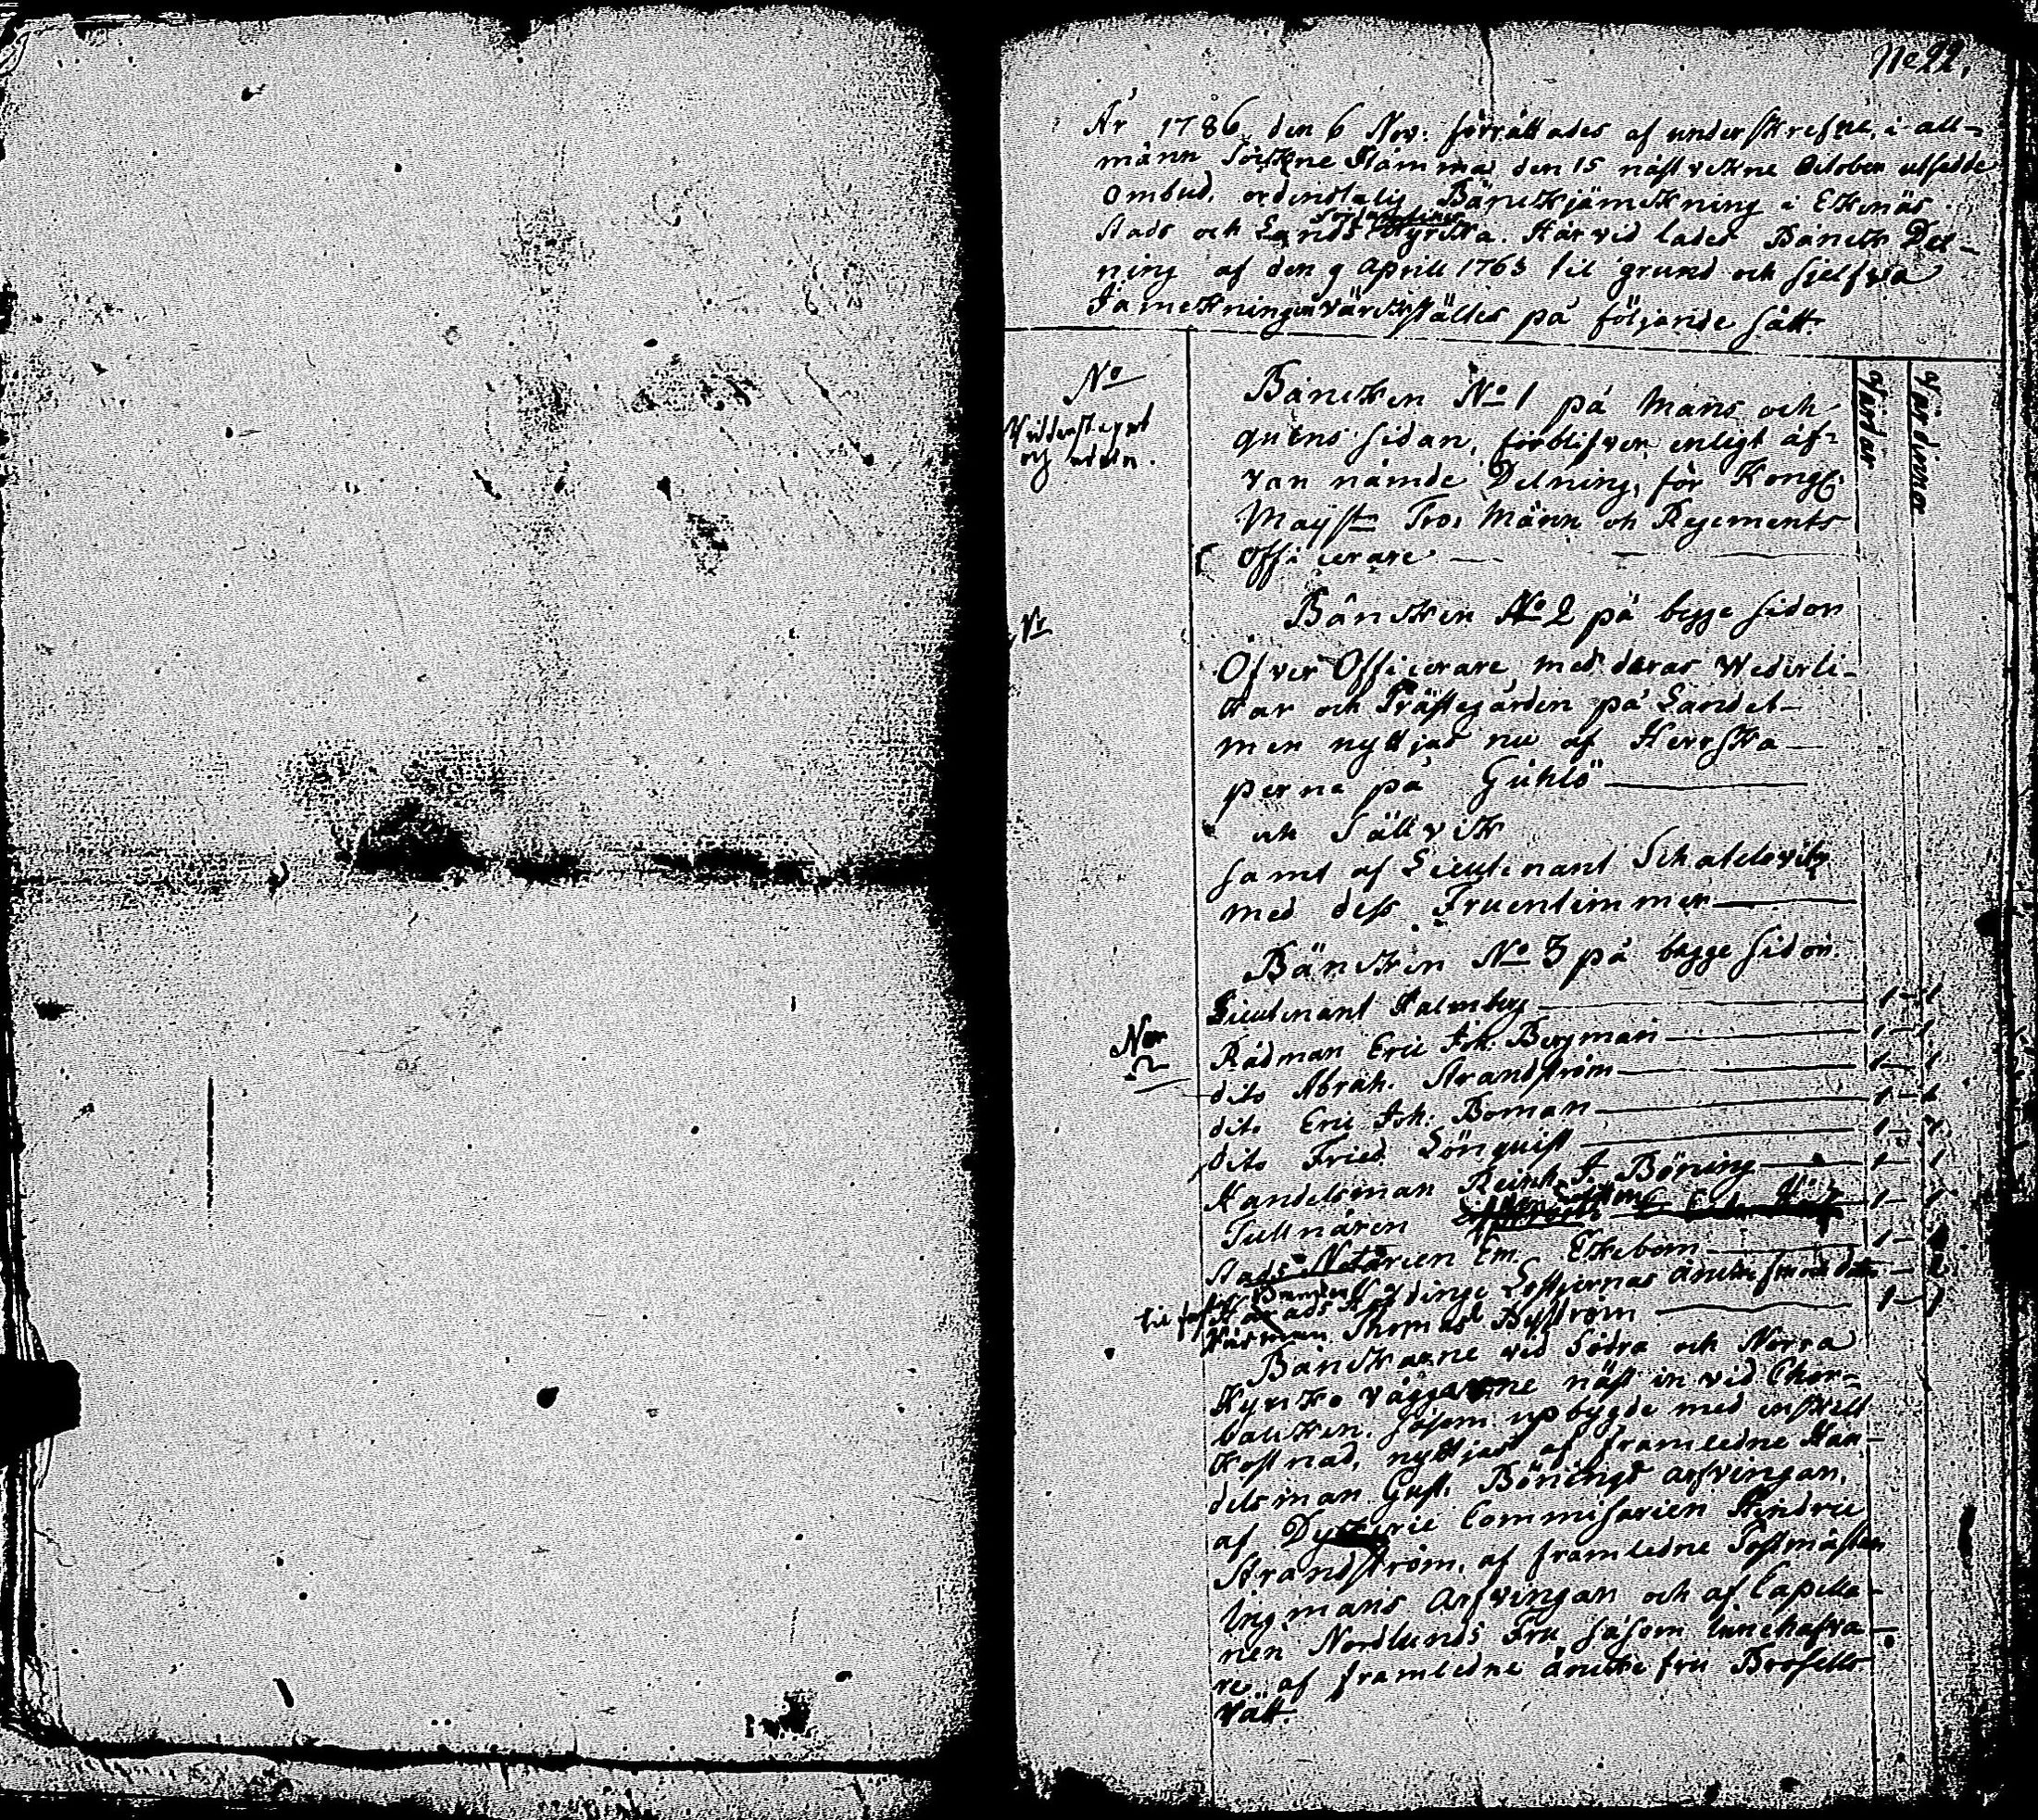 No 22.
År 1786 den 6 Nov. förrättades af underskrefne, i all-
männ Sockne Stämma den 15 näst vekne October utsedde
Ombud, ordentelig Bänckjämckning i Ekenäs
Stads och Lands Kyrcka. Härvid lades Bänck Del-
ning af den 9 Aprill 1763 til grund och sjelfva
Jämckningen värckstältes på följande sätt
No
Bäncken No 1 på Mans och
qvens sidan, förblifver enligt åf-
van nämde Delning, för Kongl.
Mayst:s Tro Männ och Regements
Officerare
Värdar
Värdinnor
Bäncken No 2 på begge sidor
Öfver Officerare med deras Wederli-
kar och Prästegården på Landet
men nyttjas nu af Herrska-
perne på Gühlö
och Sällvik
samt af Lieutenant Schatelovitz
med dess Fruentimmer
Bäncken No 3 på begge sidor.
Lieutenant Malmberg 1 - 1
Rådman Eric Joh. Bergman 1 - 1
dito Abrah. Strandström 1 - 1
dito Eric Joh. Boman 1 - 1
dito Fried. Lönquist 1 - 1
Handelsman Reinh. J. Böning 1 - 1
Tullnären 1 - 1
Stads Notarien Em. Ekebom 1 - 1
Thomas Byström 1 - 1
Bänckarne vid Södra och Norra
Kyrko väggarne näst in vid Chor-
bäncken, såsom upbygde med enskilt
kostnad, nyttjas af framledne Han-
delsman Gust. Bönings arfvingar,
af Commissarien Hindric
Strandström, af framledne Postmästar
Ingmans Arfvingar och af Capella-
nen Nordlunds Fru såsom innehafva-
re af framledne änckefru Brosells
Rätt.